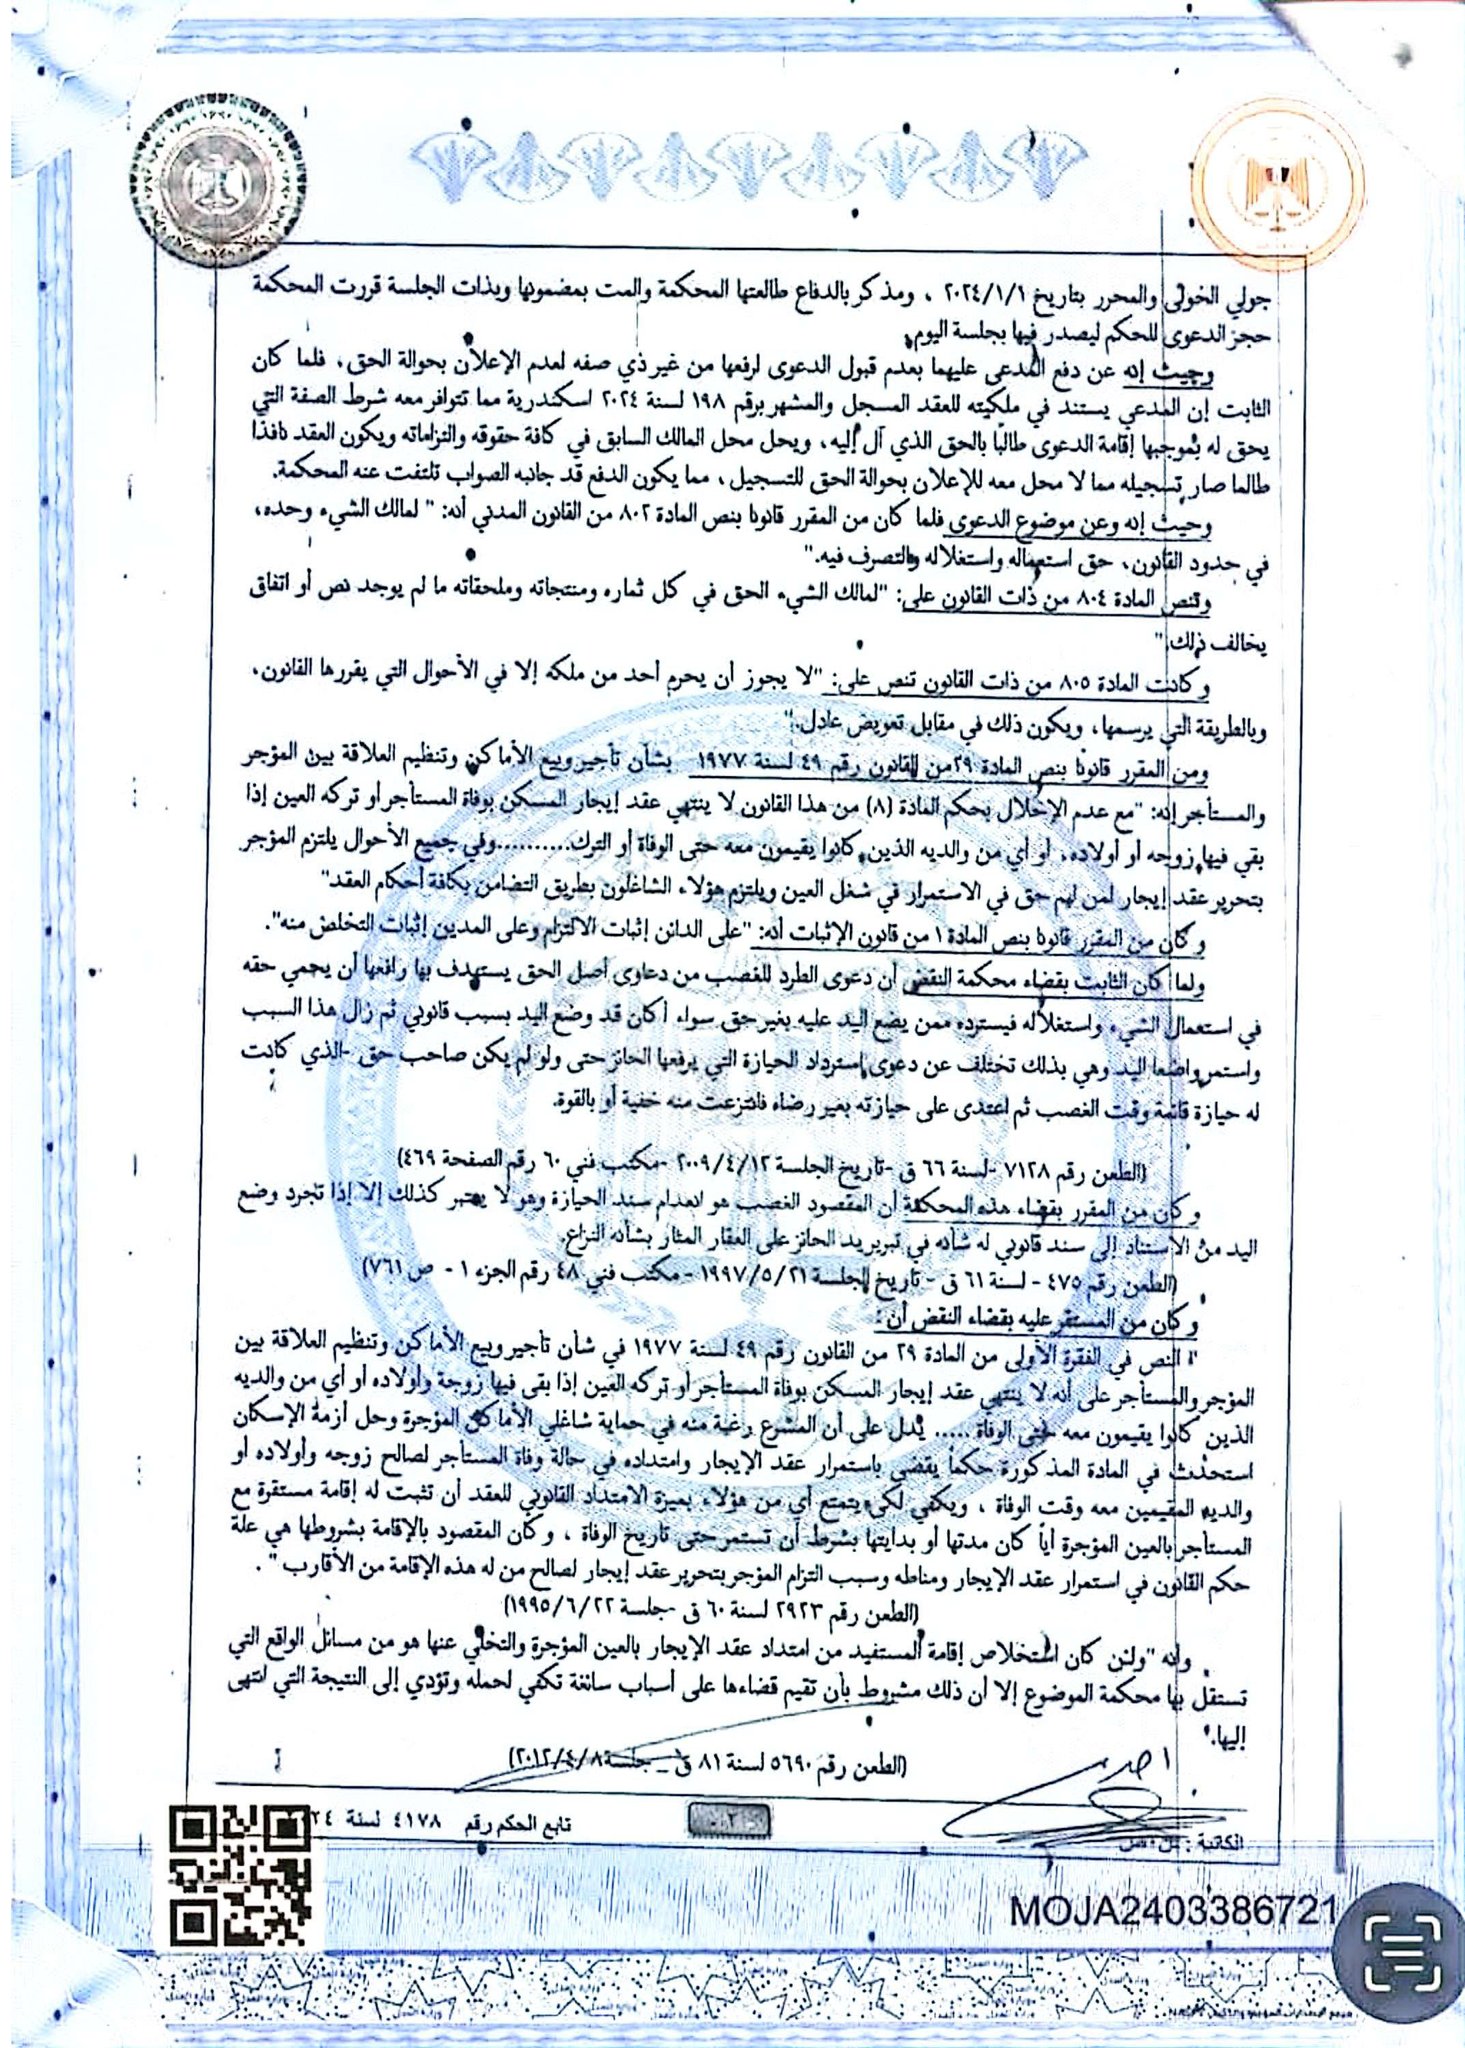 جولي الخولى والمحرر بتاريخ ٢٠٢٤/١/١ ، ومذكر بالدفاع طالعتها المحكمة والمت بمضمونها وبذات الجلسة قررت المحكمة
حجز الدعوى للحكم ليصدر فيها بجلسة اليوم.
وحيث إنه عن دفع المدعى عليهما بعدم قبول الدعوى لرفعها من غير ذي صفه لعدم الإعلان بحوالة الحق، فلما كان
الثابت إن المدعي يستند في ملكيته للعقد المسجل والمشهر برقم ١٩٨ لسنة ٢٠٢٤ اسكندرية مما تتوافر معه شرط الصفة التي
يحق له بموجبها إقامة الدعوى طالبًا بالحق الذي آل إليه، ويحل محل المالك السابق في كافة حقوقه والتزاماته ويكون العقد نافذًا
طالما صار تسجيله مما لا محل معه للإعلان بحوالة الحق للتسجيل، مما يكون الدفع قد جانبه الصواب تلتفت عنه المحكمة.
وحيث إنه وعن موضوع الدعوى فلما كان من المقرر قانونا بنص المادة ٨٠٢ من القانون المدني أنه: " لمالك الشيء وحده،
في حدود القانون، حق استعماله واستغلاله والتصرف فيه."
وتنص المادة ٨٠٤ من ذات القانون على: "لمالك الشيء الحق في كل ثماره ومنتجاته وملحقاته ما لم يوجد نص أو اتفاق
يخالف ذلك."
وكانت المادة ٨٠٥ من ذات القانون تنص على: "لا يجوز أن يحرم أحد من ملكه إلا في الأحوال التي يقررها القانون،
وبالطريقة التي يرسمها، ويكون ذلك في مقابل تعويض عادل."
ومن المقرر قانونا بنص المادة ٢٩من القانون رقم ٤٩ لسنة ١٩٧٧ بشأن تأجير وبيع الأماكن وتنظيم العلاقة بين المؤجر
والمستأجر إنه: "مع عدم الإخلال بحكم المادة (٨) من هذا القانون لا ينتهي عقد إيجار المسكن بوفاة المستأجر أو تركه العين إذا
بقي فيها زوجه أو أولاده، أو أي من والديه الذين كانوا يقيمون معه حتى الوفاة أو الترك..........وفي جميع الأحوال يلتزم المؤجر
بتحرير عقد إيجار لمن لهم حق في الاستمرار في شغل العين ويلتزم هؤلاء الشاغلون بطريق التضامن بكافة أحكام العقد"
وكان من المقرر قانونا بنص المادة ١ من قانون الإثبات أنه: "على الدائن إثبات الالتزام وعلى المدين إثبات التخلص منه".
ولما كان الثابت بقضاء محكمة النقض أن دعوى الطرد للغصب من دعاوى أصل الحق يستهدف بها رافعها أن يحمي حقه
في استعمال الشيء واستغلاله فيسترده ممن يضع اليد عليه بغير حق سواء أكان قد وضع اليد بسبب قانوني ثم زال هذا السبب
واستمر واضعا اليد وهي بذلك تختلف عن دعوى استرداد الحيازة التي يرفعها الحائز حتى ولو لم يكن صاحب حق -الذي كانت
له حيازة قائمة وقت الغصب ثم اعتدى على حيازته بغير رضاء فانتزعت منه خفية أو بالقوة.
(الطعن رقم ٧١٢٨ -لسنة ٦٦ ق -تاريخ الجلسة ٢٠٠٩/٤/١٢ -مكتب فني ٦٠ رقم الصفحة ٤٦٩)
وكان من المقرر بقضاء هذه المحكمة أن المقصود الغصب هو انعدام سند الحيازة وهو لا يعتبر كذلك إلا إذا تجرد وضع
اليد من الاستناد إلى سند قانوني له شأنه في تبرير يد الحائز على العقار المثار بشأنه النزاع.
(الطعن رقم ٤٧٥ - لسنة ٦١ ق - تاريخ الجلسة ١٩٩٧/٥/٢١ - مكتب فني ٤٨ رقم الجزء ١ - ص ٧٦١)
وكان من المستقر عليه بقضاء النقض أن :
" النص في الفقرة الأولى من المادة ٢٩ من القانون رقم ٤٩ لسنة ١٩٧٧ في شأن تأجير وبيع الأماكن وتنظيم العلاقة بين
المؤجر والمستأجر على أنه لا ينتهي عقد إيجار المسكن بوفاة المستأجر أو تركه العين إذا بقى فيها زوجة وأولاده أو أي من والديه
الذين كانوا يقيمون معه حتى الوفاة ..... يدل على أن المشرع رغبة منه في حماية شاغلي الأماكن المؤجرة وحل أزمة الإسكان
استحدث في المادة المذكورة حكماً يقضى باستمرار عقد الإيجار وامتداده في حالة وفاة المستأجر لصالح زوجه وأولاده أو
والديه المقيمين معه وقت الوفاة ، ويكفي لكي يتمتع أي من هؤلاء بميزة الامتداد القانوني للعقد أن تثبت له إقامة مستقرة مع
المستأجر بالعين المؤجرة أياً كان مدتها أو بدايتها بشرط أن تستمر حتى تاريخ الوفاة ، وكان المقصود بالإقامة بشروطها هي علة
حكم القانون في استمرار عقد الإيجار ومناطه وسبب التزام المؤجر بتحرير عقد إيجار لصالح من له هذه الإقامة من الأقارب " .
(الطعن رقم ٢٩٢٣ لسنة ٦٠ ق -جلسة ١٩٩٥/٦/٢٢)
وأنه "ولئن كان استخلاص إقامة المستفيد من امتداد عقد الإيجار بالعين المؤجرة والتخلي عنها هو من مسائل الواقع التي
تستقل بها محكمة الموضوع إلا أن ذلك مشروط بأن تقيم قضاءها على أسباب سائغة تكفي لحمله وتؤدي إلى النتيجة التي انتهى
إليها."
(الطعن رقم ٥٦٩٠ لسنة ٨١ ق – جلسة ٢٠١٢/٤/٨)
تابع الحكم رقم ٤١٧٨ لسنة ٢٤
٢
الكاتبة :
MOJA2403386721